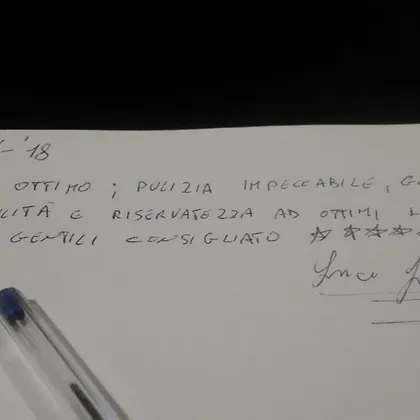 -'18
OTTIMO; PULIZIA IMPECCABILE, G
ILITÀ E RISERVATEZZA AD OTTIMI L
GENTILI CONSIGLIATO ☆☆☆☆